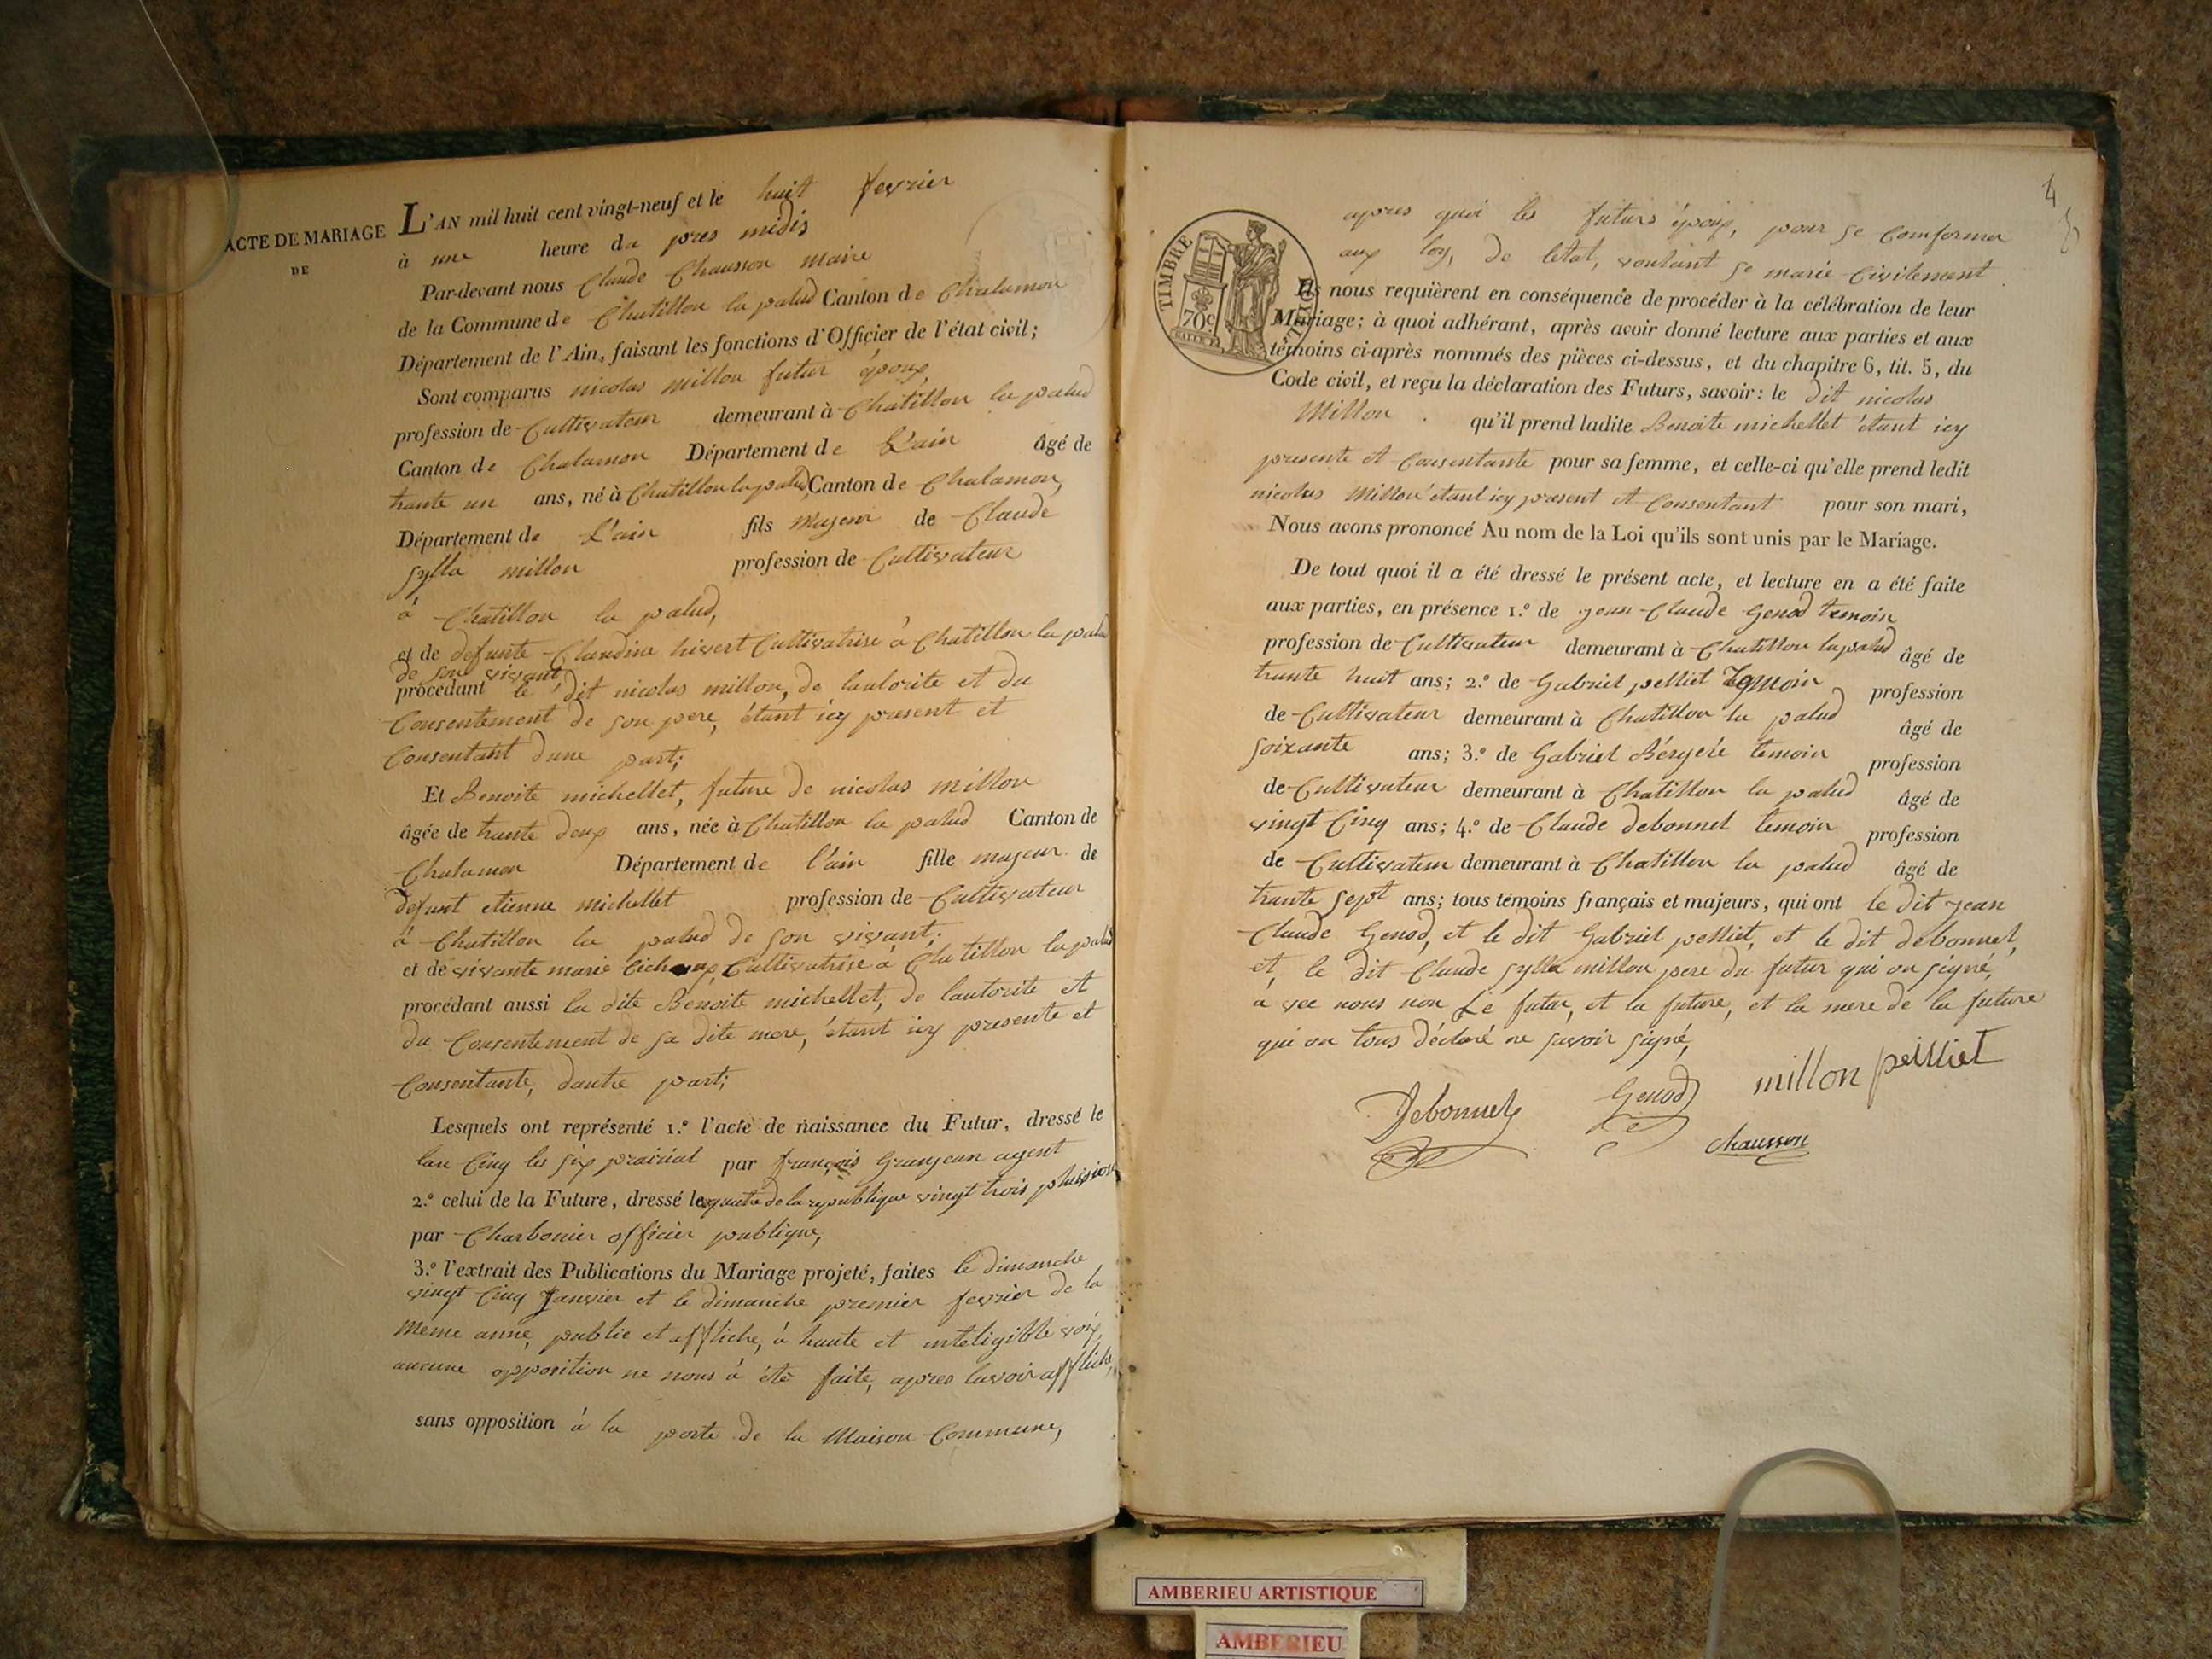 ACTE DE MARIAGE
DE
L'AN mil huit cent vingt-neuf et le huit fevrier
à une heure da pres midis
Par-devant nous Claude Chausson maire
de la Commune de Chatillon la palud Canton de Chalamon
Département de l'Ain, faisant les fonctions d'Officier de l'état civil;
Sont comparus nicolas millon futur époux,
profession de Cultivateur demeurant à Chatillon la palud
Canton de Chalamon Département de L'ain âgé de
trante un ans, né à Chatillon la palud Canton de Chalamon,
Département de L'ain fils majeur de Claude
sylla millon profession de Cultivateur
à Chatillon la palud,
et de defunte Claudine hivert Cultivatrise à Chatillon la palud
de son vivant,
procédant le dit nicolas millon, de lautorite et du
Consentement de son pere, étant icy present et
Consentant dune part;
Et Benoite michellet, future de nicolas millon
âgée de trante deux ans, née à Chatillon la palud Canton de
Chalamon Département de l'ain fille majeur de
defunt etienne michellet profession de Cultivateur
à Chatillon la palud de son vivant;
et de vivante marie Cultivatrise à Chatillon la palud
procédant aussi la dite Benoite michellet, de lautorite et
du Consentement de sa dite mere, étant icy presente et
Consentante, dautre part;
Lesquels ont représenté 1.º l'acte de naissance du Futur, dressé le
lan Cinq les six prairial par françois Granjean agent
2.º celui de la Future, dressé le quatre de la republique vingt trois pluviose
par Charbonier officier publique,
3.º l'extrait des Publications du Mariage projeté, faites le dimanche
vingt Cinq Janvier et le dimanche premier fevrier de la
même anne, publie et affliche, à haute et inteligible voix,
aucune opposition ne nous à été faite, apres lavoir affliche,
sans opposition à la porte de la Maison Commune,
4
TIMBRE ROYAL
70c
apres quoi les futurs époux, pour se Comformer
aux loy, de letat, voulant se marie Civilement
Ils nous requièrent en conséquence de procéder à la célébration de leur
Mariage; à quoi adhérant, après avoir donné lecture aux parties et aux
témoins ci-après nommés des pièces ci-dessus, et du chapitre 6, tit. 5, du
Code civil, et reçu la déclaration des Futurs, savoir: le dit nicolas
Millon qu'il prend ladite Benoite michellet étant icy
presente et Consentante pour sa femme, et celle-ci qu'elle prend ledit
nicolas Millon étant icy present et Consentant pour son mari,
Nous avons prononcé Au nom de la Loi qu'ils sont unis par le Mariage.
De tout quoi il a été dressé le présent acte, et lecture en a été faite
aux parties, en présence 1.º de jean Claude Genod temoin
profession de Cultivateur demeurant à Chatillon la palud âgé de
trante huit ans; 2.º de Gabriel pelliet Temoin profession
de Cultivateur demeurant à Chatillon la palud âgé de
soixante ans; 3.º de Gabriel Bérgeré temoin profession
de Cultivateur demeurant à Chatillon la palud âgé de
vingt Cinq ans; 4.º de Claude debonnet temoin profession
de Cultivateur demeurant à Chatillon la palud âgé de
trante sept ans; tous témoins français et majeurs, qui ont le dit jean
Claude Genod, et le dit Gabriel pelliet, et le dit debonnet,
et, le dit Claude sylla millon pere du futur qui on signé,
a vec nous non Le futur, et la future, et la mere de la future
qui on tous déclaré ne savoir signé,
millon pelliet
Debonnet Genod
chausson
AMBERIEU ARTISTIQUE
AMBERIEU